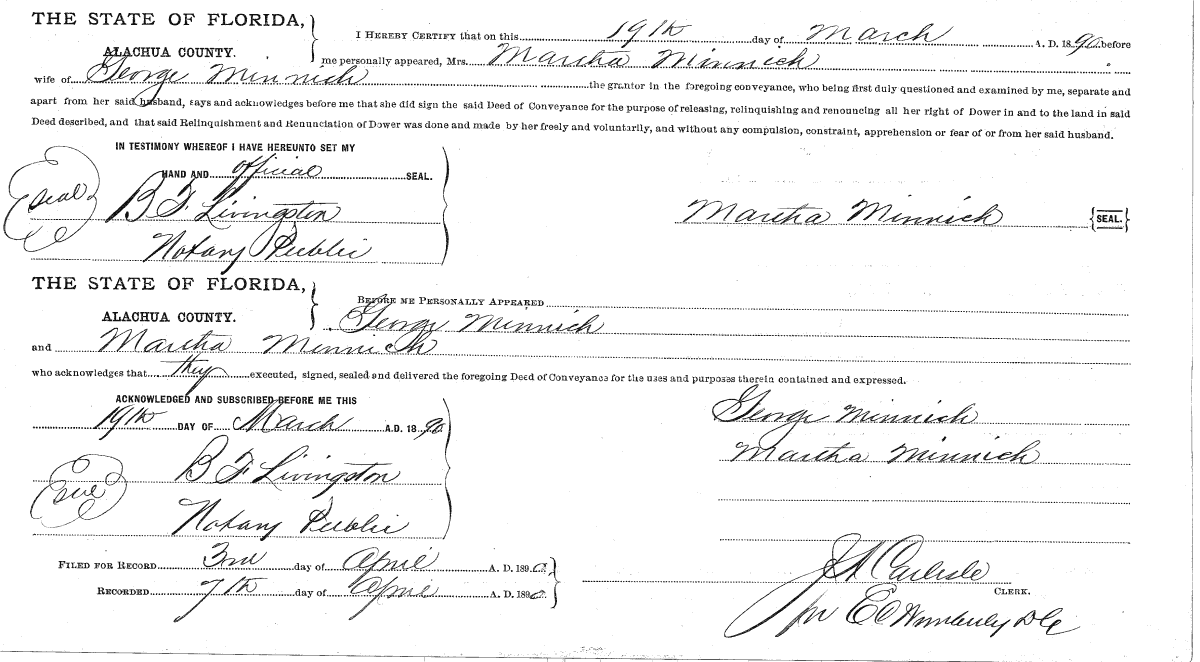 THE STATE OF FLORIDA,
ALACHUA COUNTY.
I HEREBY CERTIFY that on this 19th day of March A. D. 1890 before
me personally appeared, Mrs. Martha Minnich
wife of George Minnich the grantor in the foregoing conveyance, who being first duly questioned and examined by me, separate and
apart from her said husband, says and acknowledges before me that she did sign the said Deed of Conveyance for the purpose of releasing, relinquishing and renouncing all her right of Dower in and to the land in said
Deed described, and that said Relinquishment and Renunciation of Dower was done and made by her freely and voluntarily, and without any compulsion, constraint, apprehension or fear of or from her said husband.
IN TESTIMONY WHEREOF I HAVE HEREUNTO SET MY
HAND AND official SEAL.
seal
B F Livingston
Notary Public
Martha Minnich {SEAL.}
THE STATE OF FLORIDA,
ALACHUA COUNTY.
BEFORE ME PERSONALLY APPEARED
George Minnich
and Martha Minnich
who acknowledges that they executed, signed, sealed and delivered the foregoing Deed of Conveyance for the uses and purposes therein contained and expressed.
ACKNOWLEDGED AND SUBSCRIBED BEFORE ME THIS
19th DAY OF March A.D. 1890
B F Livingston
Notary Public
George Minnich
Martha Minnich
FILED FOR RECORD 3rd day of April A. D. 1890
RECORDED 7th day of April A. D. 1890
Carlisle
CLERK.
Wimberly D C